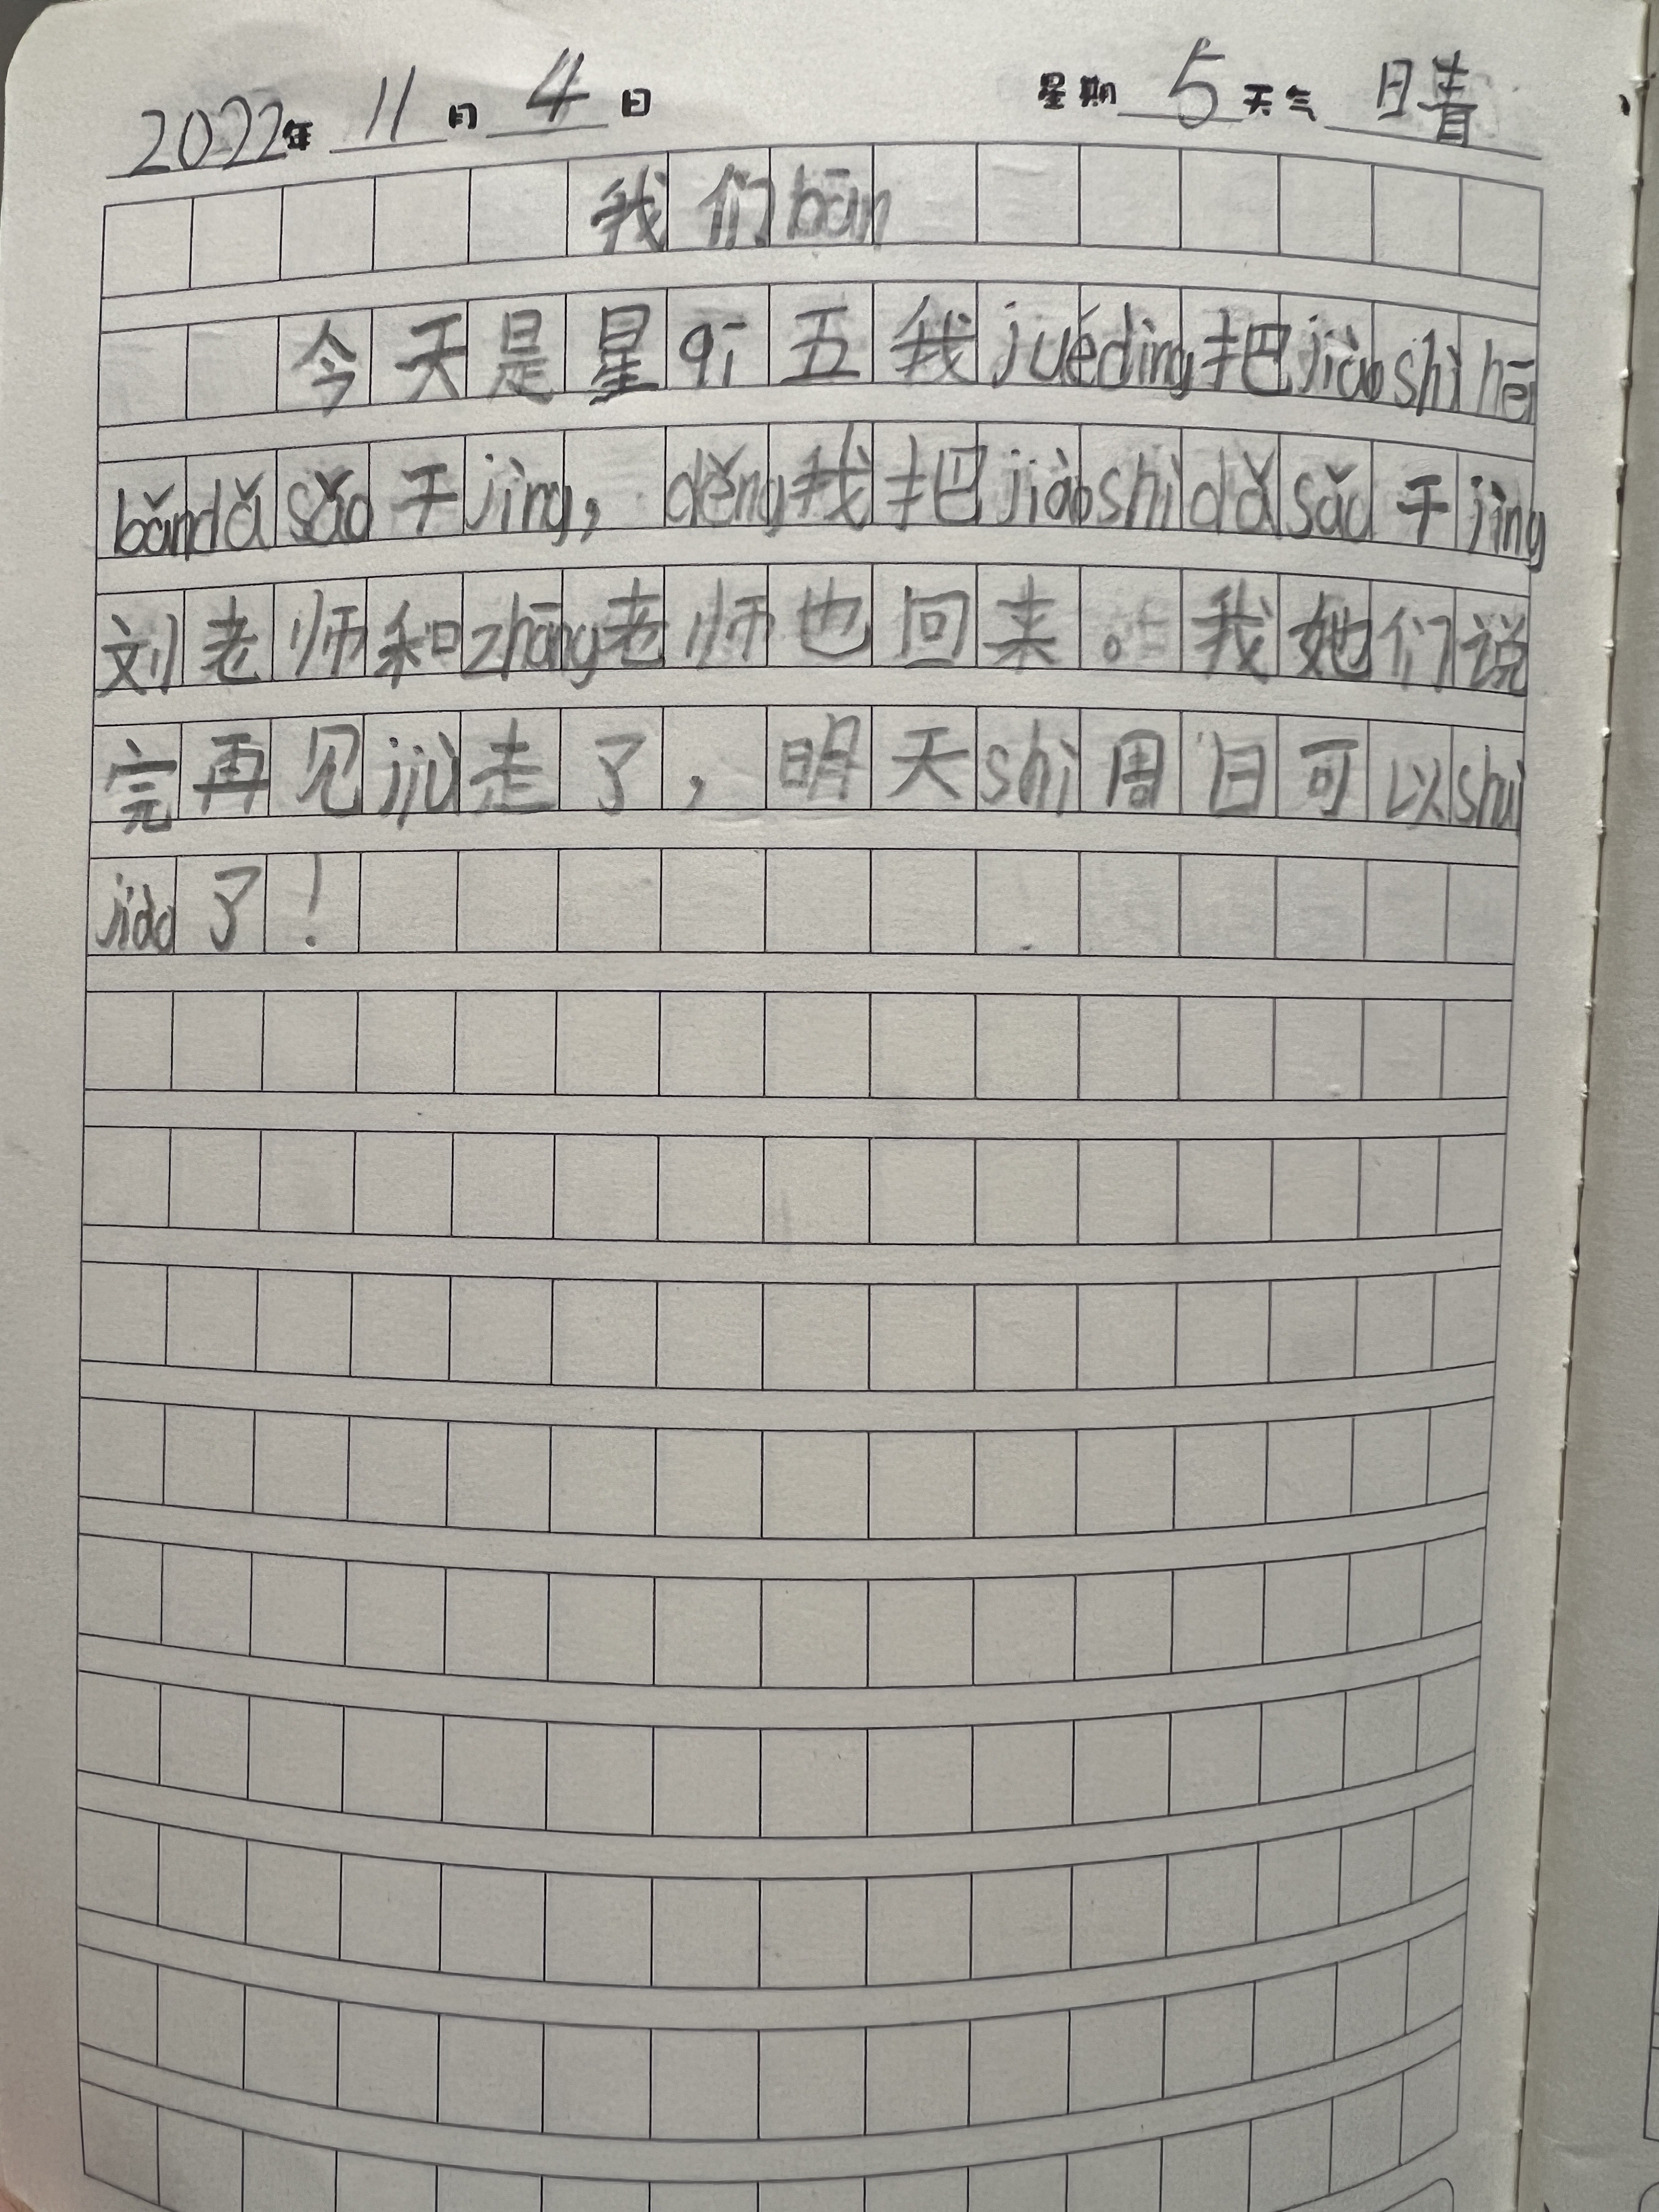 2022年 11月 4日 星期 5 天气 晴
我们bān
今天是星qī五我juédìng把jiàoshì hēi
bǎndǎ sǎo干jìng，děng我把jiàoshìdǎ sǎo干jìng
刘老师和zhāng老师也回来。我她们说
完再见jiù走了，明天shì周日可以shuì
jiào了！